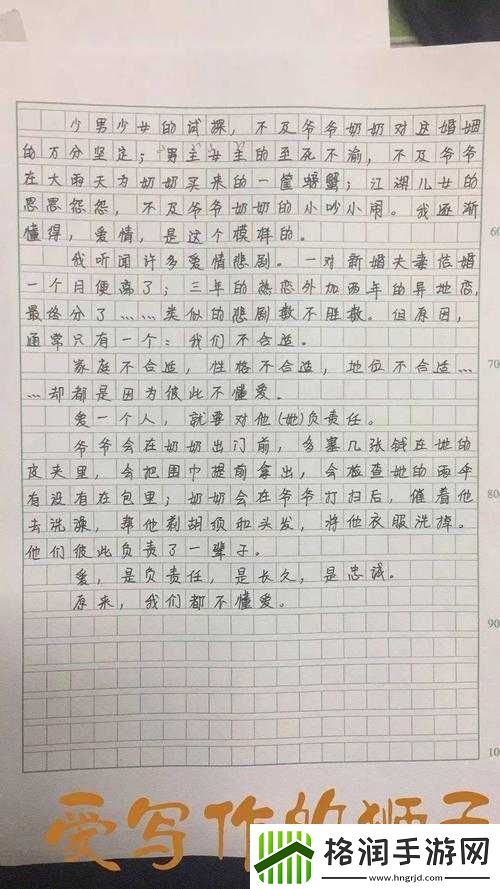 少男少女的试探，不及爷爷奶奶对这婚姻
的万分坚定；男主女主的至死不渝，不及爷爷
在大雨天为奶奶买来的一筐螃蟹；江湖儿女的
恩恩怨怨，不及爷爷奶奶的小吵小闹。我逐渐
懂得，爱情，是这个模样的。
60
我听闻许多爱情悲剧。一对新婚夫妻恰婚
一个月便离了；三年的热恋外加两年的异地恋，
最终分了……类似的悲剧数不胜数。但原因，
通常只有一个：我们不合适。
家庭不合适，性格不合适，地位不合适…
70
…却都是因为彼此不懂爱。
爱一个人，就要对他(她)负责任。
爷爷会在奶奶出门前，多塞几张钱在她的
皮夹里，会把围巾提前拿出，会检查她的雨伞
有没有在包里；奶奶会在爷爷打扫后，催着他
80
去洗澡，帮他剃胡须和头发，将他衣服洗掉。
他们彼此负责了一辈子。
爱，是负责任，是长久，是忠诚。
原来，我们都不懂爱。
90
10
爱写作的狮子
格润手游网
www.hngrjd.com